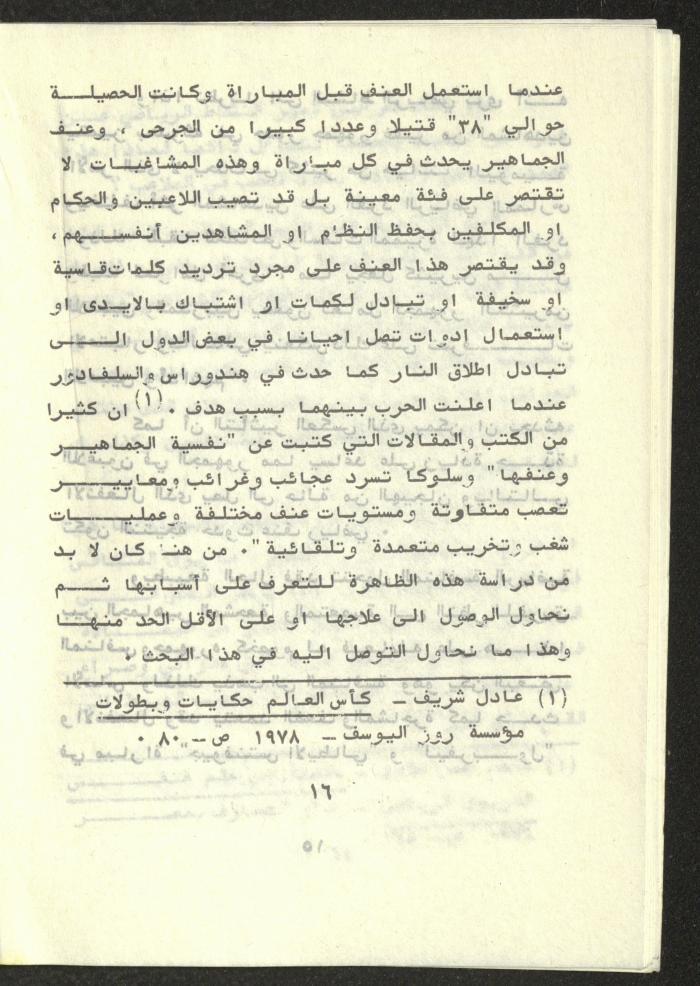 عندما استعمل العنف قبل المباراة وكانت الحصيلة
حوالي "٣٨" قتيلا وعددا كبيرا من الجرحى ، وعنف
الجماهير يحدث في كل مباراة وهذه المشاغبات لا
تقتصر على فئة معينة بل قد تصيب اللاعبين والحكام
او المكلفين بحفظ النظام او المشاهدين أنفسهم ،
وقد يقتصر هذا العنف على مجرد ترديد كلمات قاسية
او سخيفة او تبادل لكمات او اشتباك بالايدى او
استعمال ادوات تصل احيانا في بعض الدول الى
تبادل اطلاق النار كما حدث في هندوراس والسلفادور
عندما اعلنت الحرب بينهما بسبب هدف . (١) ان كثيرا
من الكتب والمقالات التي كتبت عن "نفسية الجماهير
وعنفها" وسلوكا تسرد عجائب وغرائب ومعايير
تعصب متفاوتة ومستويات عنف مختلفة وعمليات
شغب وتخريب متعمدة وتلقائية " . من هنا كان لا بد
من دراسة هذه الظاهرة للتعرف على أسبابها ثم
نحاول الوصول الى علاجها او على الأقل الحد منها
وهذا ما نحاول التوصل اليه في هذا البحث .
(١) عادل شريف - كأس العالم حكايات وبطولات
مؤسسة روز اليوسف - ١٩٧٨ ص - ٨٠ .
١٦